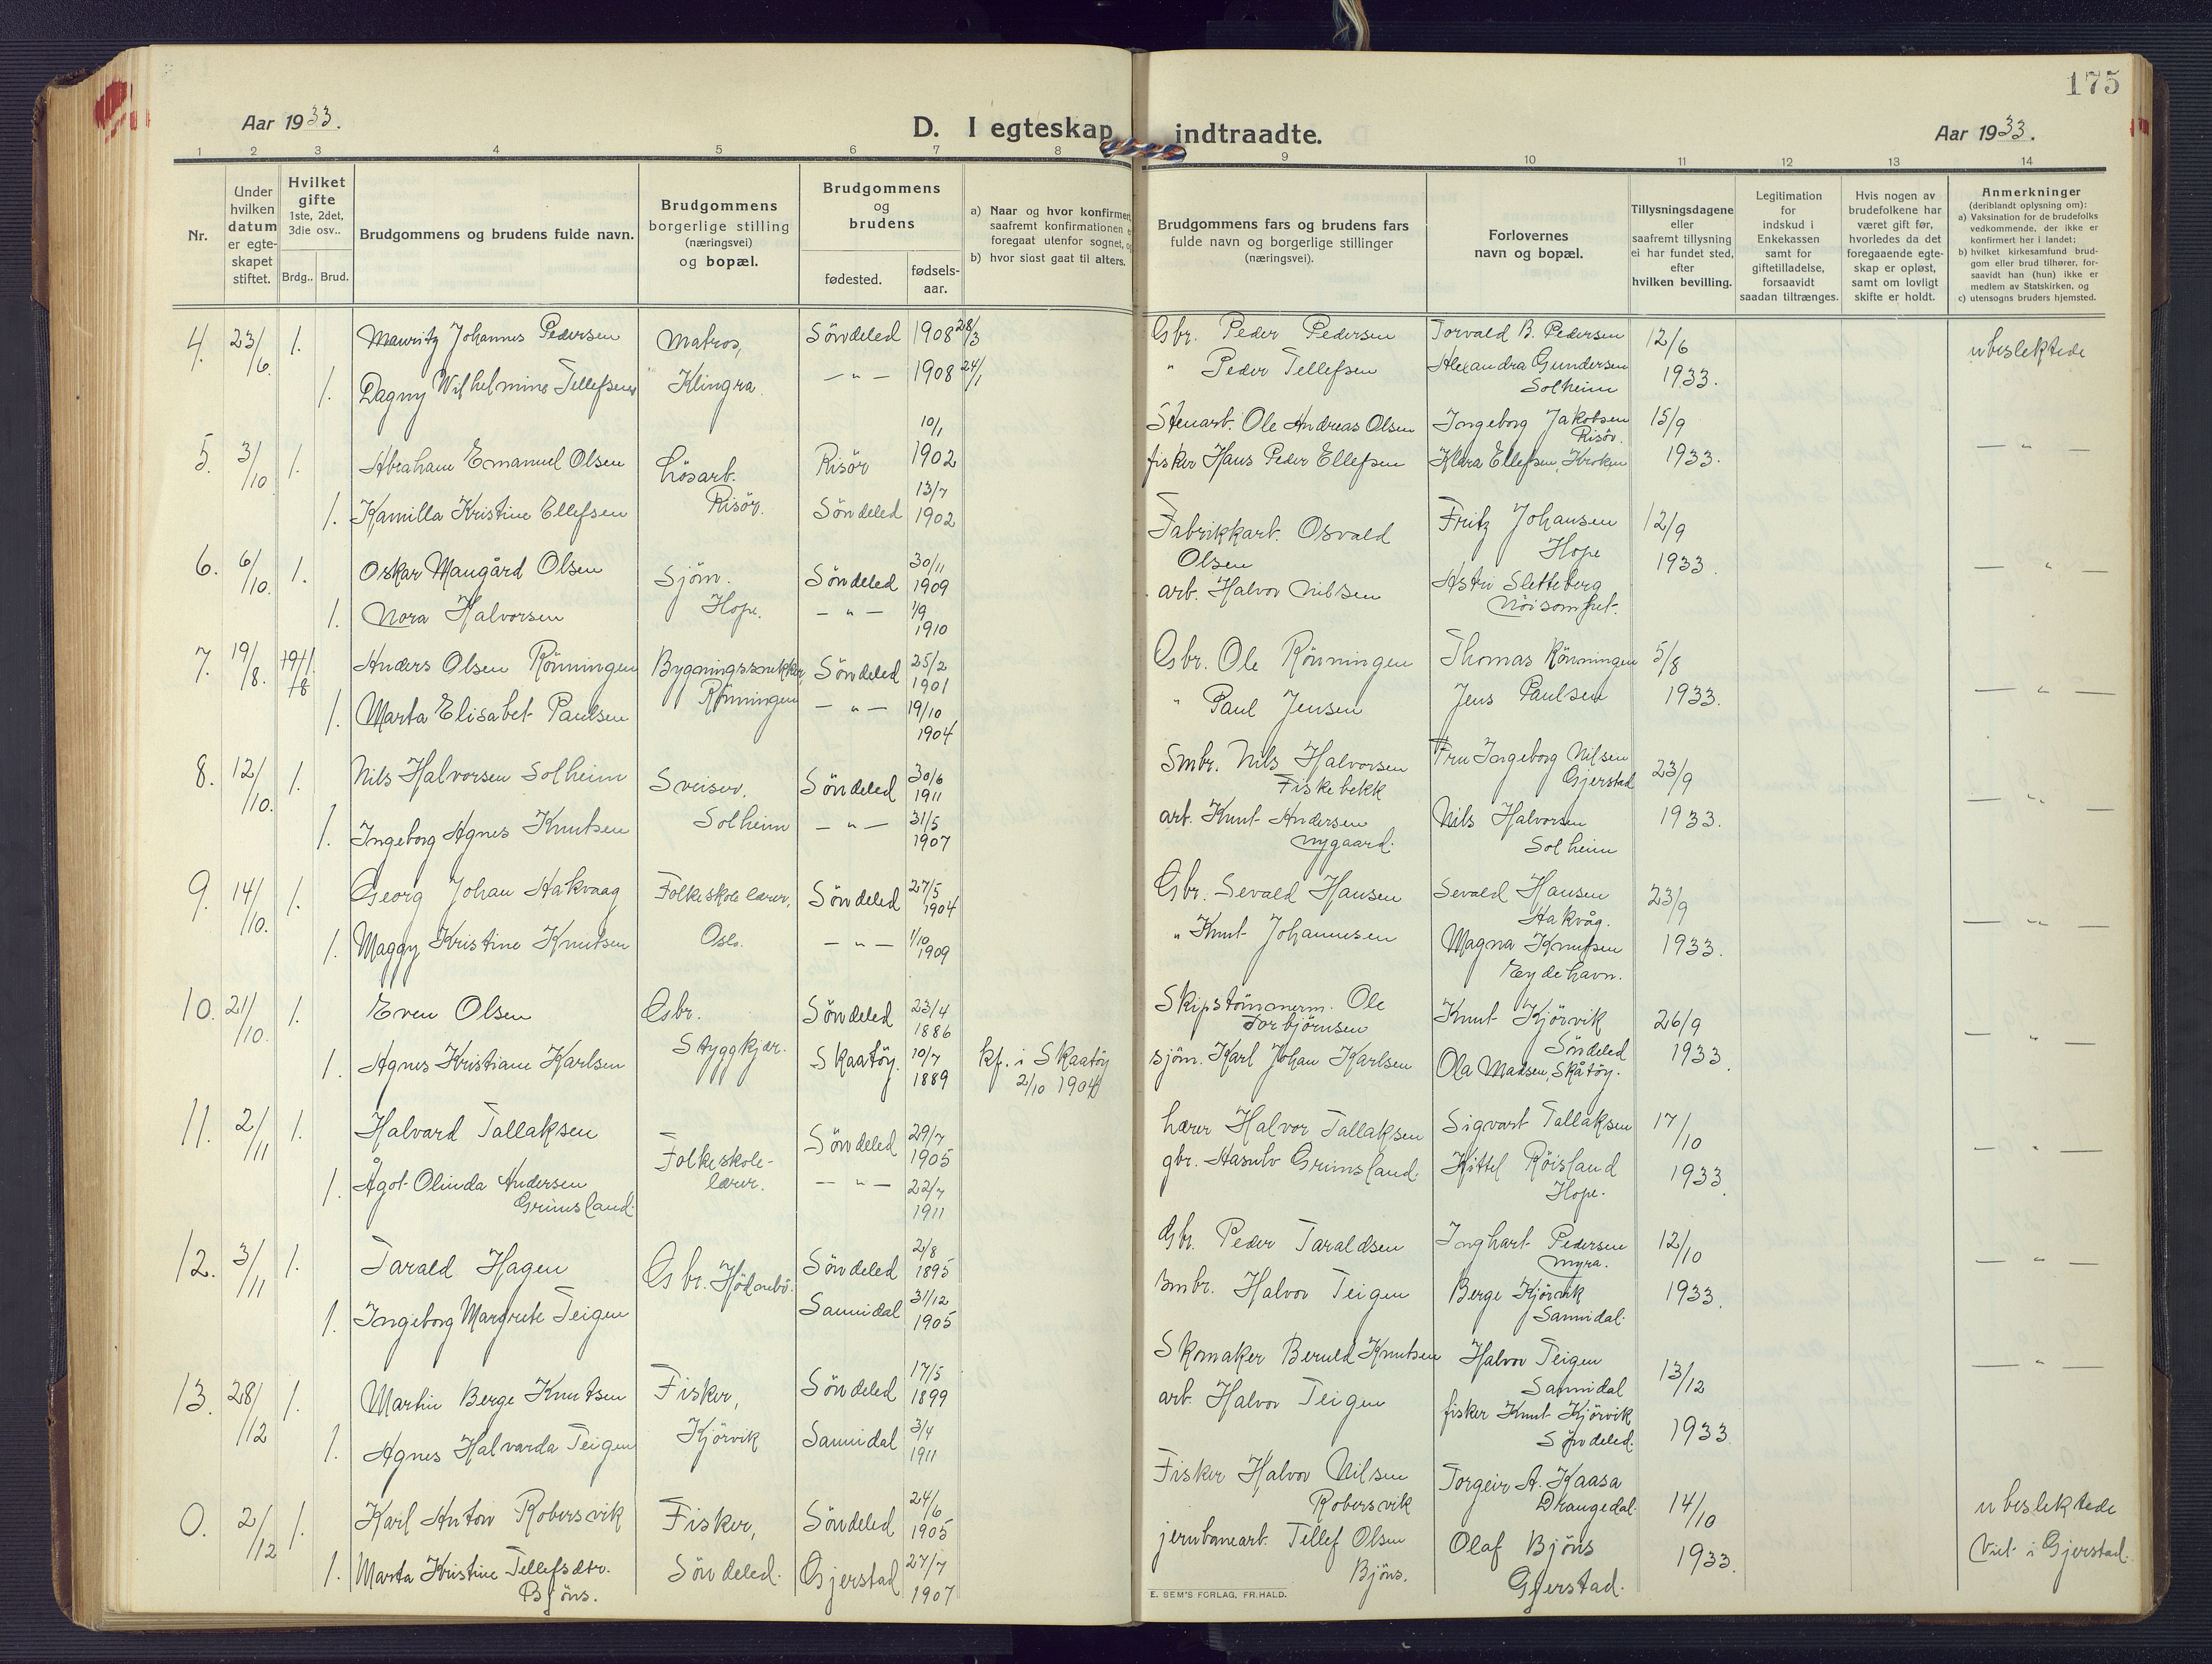 175
Aar 1933.
D. I egteskap indtraadte.
Aar 1933.
1 2 3 4 5 6 7 8 9 10 11 12 13 14
Nr.
Under hvilken datum er egte-skapet stiftet.
Hvilket gifte
1ste, 2det, 3die osv..
Brdg.. Brud.
Brudgommens og brudens fulde navn.
Brudgommens
borgerlige stilling
(næringsvei)
og bopæl.
Brudgommens
og
brudens
fødested.
fødsels-
aar.
a) Naar og hvor konfirmert,
saafremt konfirmationen
foregaat utenfor sognet,
b) hvor sist gaat til alters.
Brudgommens fars og brudens fars
fulde navn og borgerlige stillinger
(næringsvei).
Forlovernes
navn og bopæl.
Tillysningsdagene
eller
saafremt tillysning
ei har fundet sted,
efter
hvilken bevilling.
Legitimation
for
indskud i
Enkekassen
samt for
giftetilladelse,
forsaavidt
saadan tiltrænges.
Hvis nogen av
brudefolkene har
været gift før,
hvorledes da det
foregaaende egte-
skap er opløst,
samt om lovligt
skifte er holdt.
Anmerkninger
(deriblandt oplysning om):
a) Vaksination for de brudefolks
vedkommende, der ikke er
konfirmert her i landet;
b) hvilket kirkesamfund brud-
gom eller brud tilhører, for-
saavidt han (hun) ikke er
medlem av Statskirken, og
c) utensogns bruders hjemsted.
4. 23/6. 1. Mauritz Johannes Pedersen Matros, Söndeled 1908 28/3 Gbr. Peder Pedersen Torvald B. Pedersen 12/6 ubeslektede
1. Dagny Wilhelmine Tellefsen Klingra. — " — 1908 24/1 " Peder Tellefsen Alexandra Gundersen Solheim 1933.
5. 3/10 1. Abraham Emanuel Olsen Lösarb. Risör 10/1 1902 Stenarb. Ole Andreas Olsen Ingeborg Jakobsen Risör. 15/9 — " —
1. Kamilla Kristine Ellefsen Risör. Söndeled 13/7 1902 fisker Hans Peder Ellefsen Klara Ellefsen, Kroken 1933.
6. 6/10. 1. Oskar Maugård Olsen Sjöm. Söndeled 30/11 1909 Fabrikkarb. Osvald Olsen Fritz Johansen Hope 12/9 — " —
1. Nora Halvorsen Hope. — " — 1/9 1910 arb. Halvor Nilsen Astri Sletteberg Nöisomhet. 1933.
7. 19/8. 1. Anders Olsen Rönningen Bygningssnekker Söndeled 25/2 1901 Gbr. Ole Rönningen Thomas Rönningen 5/8 — " —
1. Marta Elisabet Paulsen Rönningen — " — 19/10 1904 " Paul Jensen Jens Paulsen 1933.
8. 12/10. 1. Nils Halvorsen Solheim Sveiser. Söndeled 30/6 1911 Smbr. Nils Halvorsen Fiskebekk Fru Ingeborg Nilsen Gjerstad 23/9 — " —
1. Ingeborg Agnes Knutsen Solheim — " — 31/5 1907 arb. Knut Andersen Nygaard. Nils Halvorsen Solheim 1933.
9. 14/10. 1. Georg Johan Hakvaag Folkeskolelærer, Söndeled 27/5 1904 Gbr. Sevald Hansen Sevald Hansen Hakvåg. 23/9 — " —
1. Maggy Kristine Knutsen Oslo. — " — 1/10 1909 " Knut Johannesen Magna Knutsen Eydehavn. 1933.
10. 21/10. 1. Even Olsen Gbr. Söndeled 23/4 1886 Skipstömmerm. Ole Torbjörnsen Knut Kjörvik Söndeled 26/9 — " —
1. Agnes Kristiane Karlsen Styggkjær. Skaatöy. 10/7 1889 kf. i Skaatöy 2/10 1904 sjöm. Karl Johan Karlsen Ola Madsen, Skåtöy. 1933.
11. 2/11 1. Halvard Tallaksen Folkeskole- Söndeled 29/7 1905 Lærer Halvor Tallaksen Sigvart Tallaksen 17/10 — " —
1. Ågot Olinda Andersen Grimsland. lærer. — " — 22/7 1911 gbr. Aasulv Grimsland Kittel Röisland Hope. 1933.
12. 3/11 1. Tarald Hagen Gbr. Söndeled 2/8 1895 Gbr. Peder Taraldsen Inghart Pedersen Myra. 12/10 — " —
1. Ingeborg Margrete Teigen Sannidal 31/12 1905 Smbr. Halvor Teigen Berge Kjörvik Sannidal. 1933.
13. 28/12 1. Martin Berge Knutsen Fisker, Söndeled 17/5 1899 Skomaker Beruld Knutsen Halvor Teigen Sannidal 13/12 — " —
1. Agnes Halvarda Teigen Kjörvik Sannidal 3/4 1911 arb. Halvor Teigen fisker Knut Kjörvik Söndeled. 1933.
0. 2/12 1. Karl Anton Robersvik Fisker, Söndeled 24/6 1905 Fisker Halvor Nilsen Robersvik Torgeir A. Kaasa Drangedal. 14/10 ubeslektede
1. Marta Kristine Tellefsdtr. Bjöns. Söndeled. Gjerstad 27/7 1907 jernbanearb. Tellef Olsen Bjöns. Olaf Bjöns Gjerstad. 1933. Viet i Gjerstad.
E. SEM'S FORLAG, FR.HALD.